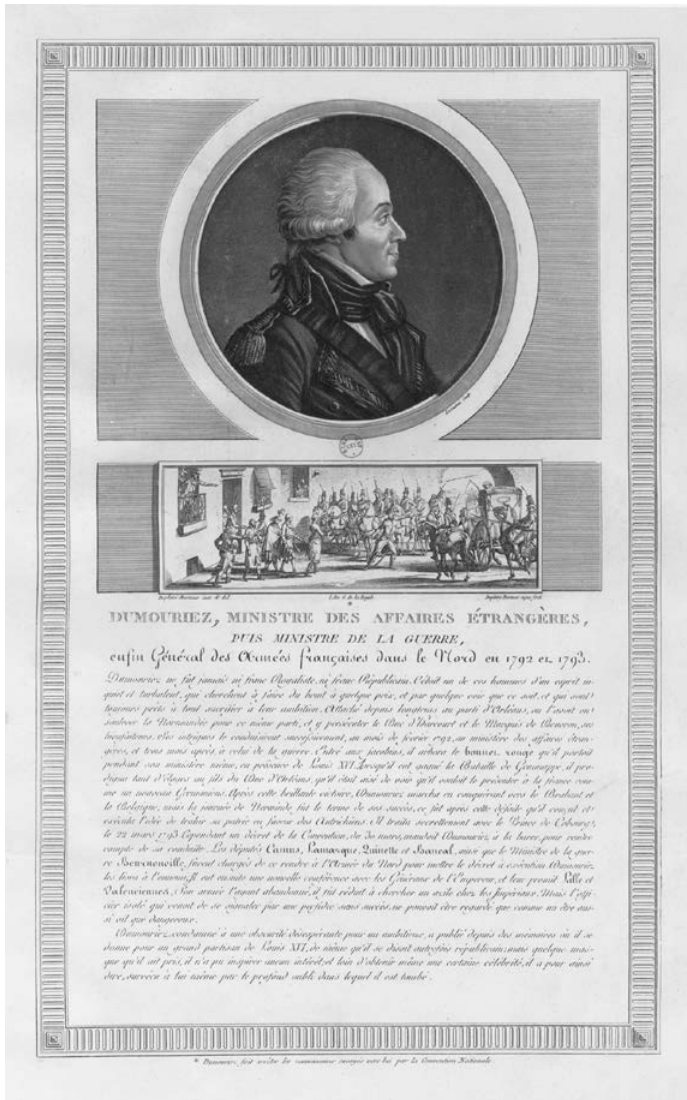 Duplessi Bertaux inv. & del.
l'An 6. de la Répub.
Duplessi Bertaux aqua forti
*
DUMOURIEZ, MINISTRE DES AFFAIRES ÉTRANGÈRES,
PUIS MINISTRE DE LA GUERRE,
enfin Général des Armées françaises dans le Nord en 1792 et 1793.
Dumouriez ne fut jamais ni franc Royaliste, ni franc Républicain. C'était un de ces hommes d'un esprit in-
quiet et turbulent, qui cherchent à faire du bruit à quelque prix, et par quelque voie que ce soit, et qui sont
toujours prêts à tout sacrifier à leur ambition. Attaché depuis longtems au parti d'Orléans, on l'avait vu
soulever la Normandie pour ce même parti, et y persécuter le Duc d'Harcourt et le Marquis de Beuvron, ses
bienfaiteurs. Ses intrigues le conduisirent successivement, au mois de février 1792, au ministère des affaires étran-
gères, et trois mois après, à celui de la guerre. Entré aux jacobins, il arbora le bonnet rouge qu'il portait
pendant son ministère même, en présence de Louis XVI. Lorsqu'il eut gagné la Bataille de Gemmappe, il pro-
digua tant d'éloges au fils du Duc d'Orléans, qu'il était aisé de voir qu'il voulait le présenter à la france com-
me un nouveau Germanicus. Après cette brillante victoire, Dumouriez marcha en conquérant vers le Brabant et
la Belgique, mais la journée de Nerwinde fut le terme de ses succès, ce fut après cette défaite qu'il conçut et
exécuta l'idée de trahir sa patrie en faveur des Autrichiens. Il traita secrettement avec le Prince de Cobourg,
le 22 mars 1793. Cependant un décret de la Convention, du 30 mars, mandait Dumouriez, à la barre, pour rendre
compte de sa conduite. Les députés Camus, Lamarque, Quinette et Bancal, ainsi que le Ministre de la guer-
re Beurnonville, furent chargés de se rendre à l'Armée du Nord pour mettre le décret à exécution. Dumouriez,
les livra à l'ennemi. Il eut ensuite une nouvelle conférence avec les Généraux de l'Empereur, et leur promit Lille et
Valenciennes. Son armée l'ayant abandonné, il fut réduit à chercher un asile chez les Impériaux. Mais l'offi-
cier isolé qui venait de se signaler par une perfidie sans succès, ne pouvait être regardé que comme un être aus-
si vil que dangereux.
Dumouriez, condamné à une obscurité désespérante pour un ambitieux, a publié depuis des mémoires où il se
donne pour un grand partisan de Louis XVI, de même qu'il se disait autrefois républicain; mais quelque mas-
que qu'il ait pris, il n'a pu inspirer aucun intérêt; et loin d'obtenir même une certaine célébrité, il a pour ainsi
dire, survécu à lui même par le profond oubli dans lequel il est tombé.
* Dumouriez fait arrêter les commissaires envoyés vers lui par la Convention Nationale.